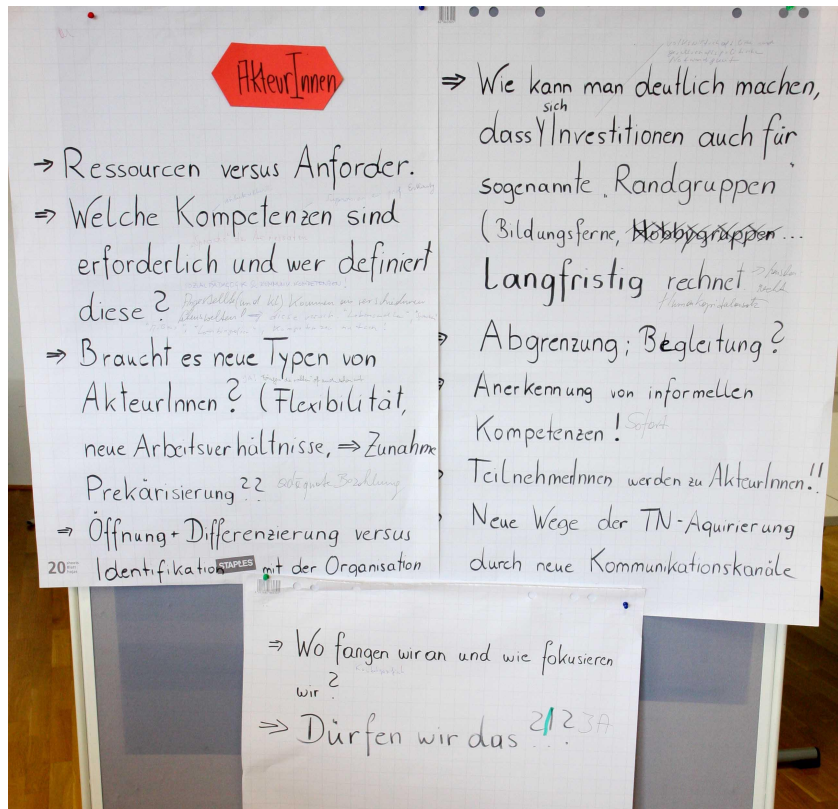 AkteurInnen
⇒ Ressourcen versus Anforder.
⇒ Welche Kompetenzen sind
erforderlich und wer definiert
diese?
⇒ Braucht es neue Typen von
AkteurInnen? (Flexibilität,
neue Arbeitsverhältnisse, ⇒ Zunahme
Prekärisierung?? adäquate Bezahlung
⇒ Öffnung + Differenzierung versus
Identifikation mit der Organisation
20
STAPLES
⇒ Wie kann man deutlich machen,
sich
dass Investitionen auch für
sogenannte "Randgruppen"
(Bildungsferne, Hobbygruppen...
Langfristig rechnet
Abgrenzung; Begleitung?
Anerkennung von informellen
Kompetenzen! Sofort
TeilnehmerInnen werden zu AkteurInnen!!
Neue Wege der TN-Aquirierung
durch neue Kommunikationskanäle
⇒ Wo fangen wir an und wie fokusieren
wir?
⇒ Dürfen wir das ?!? JA